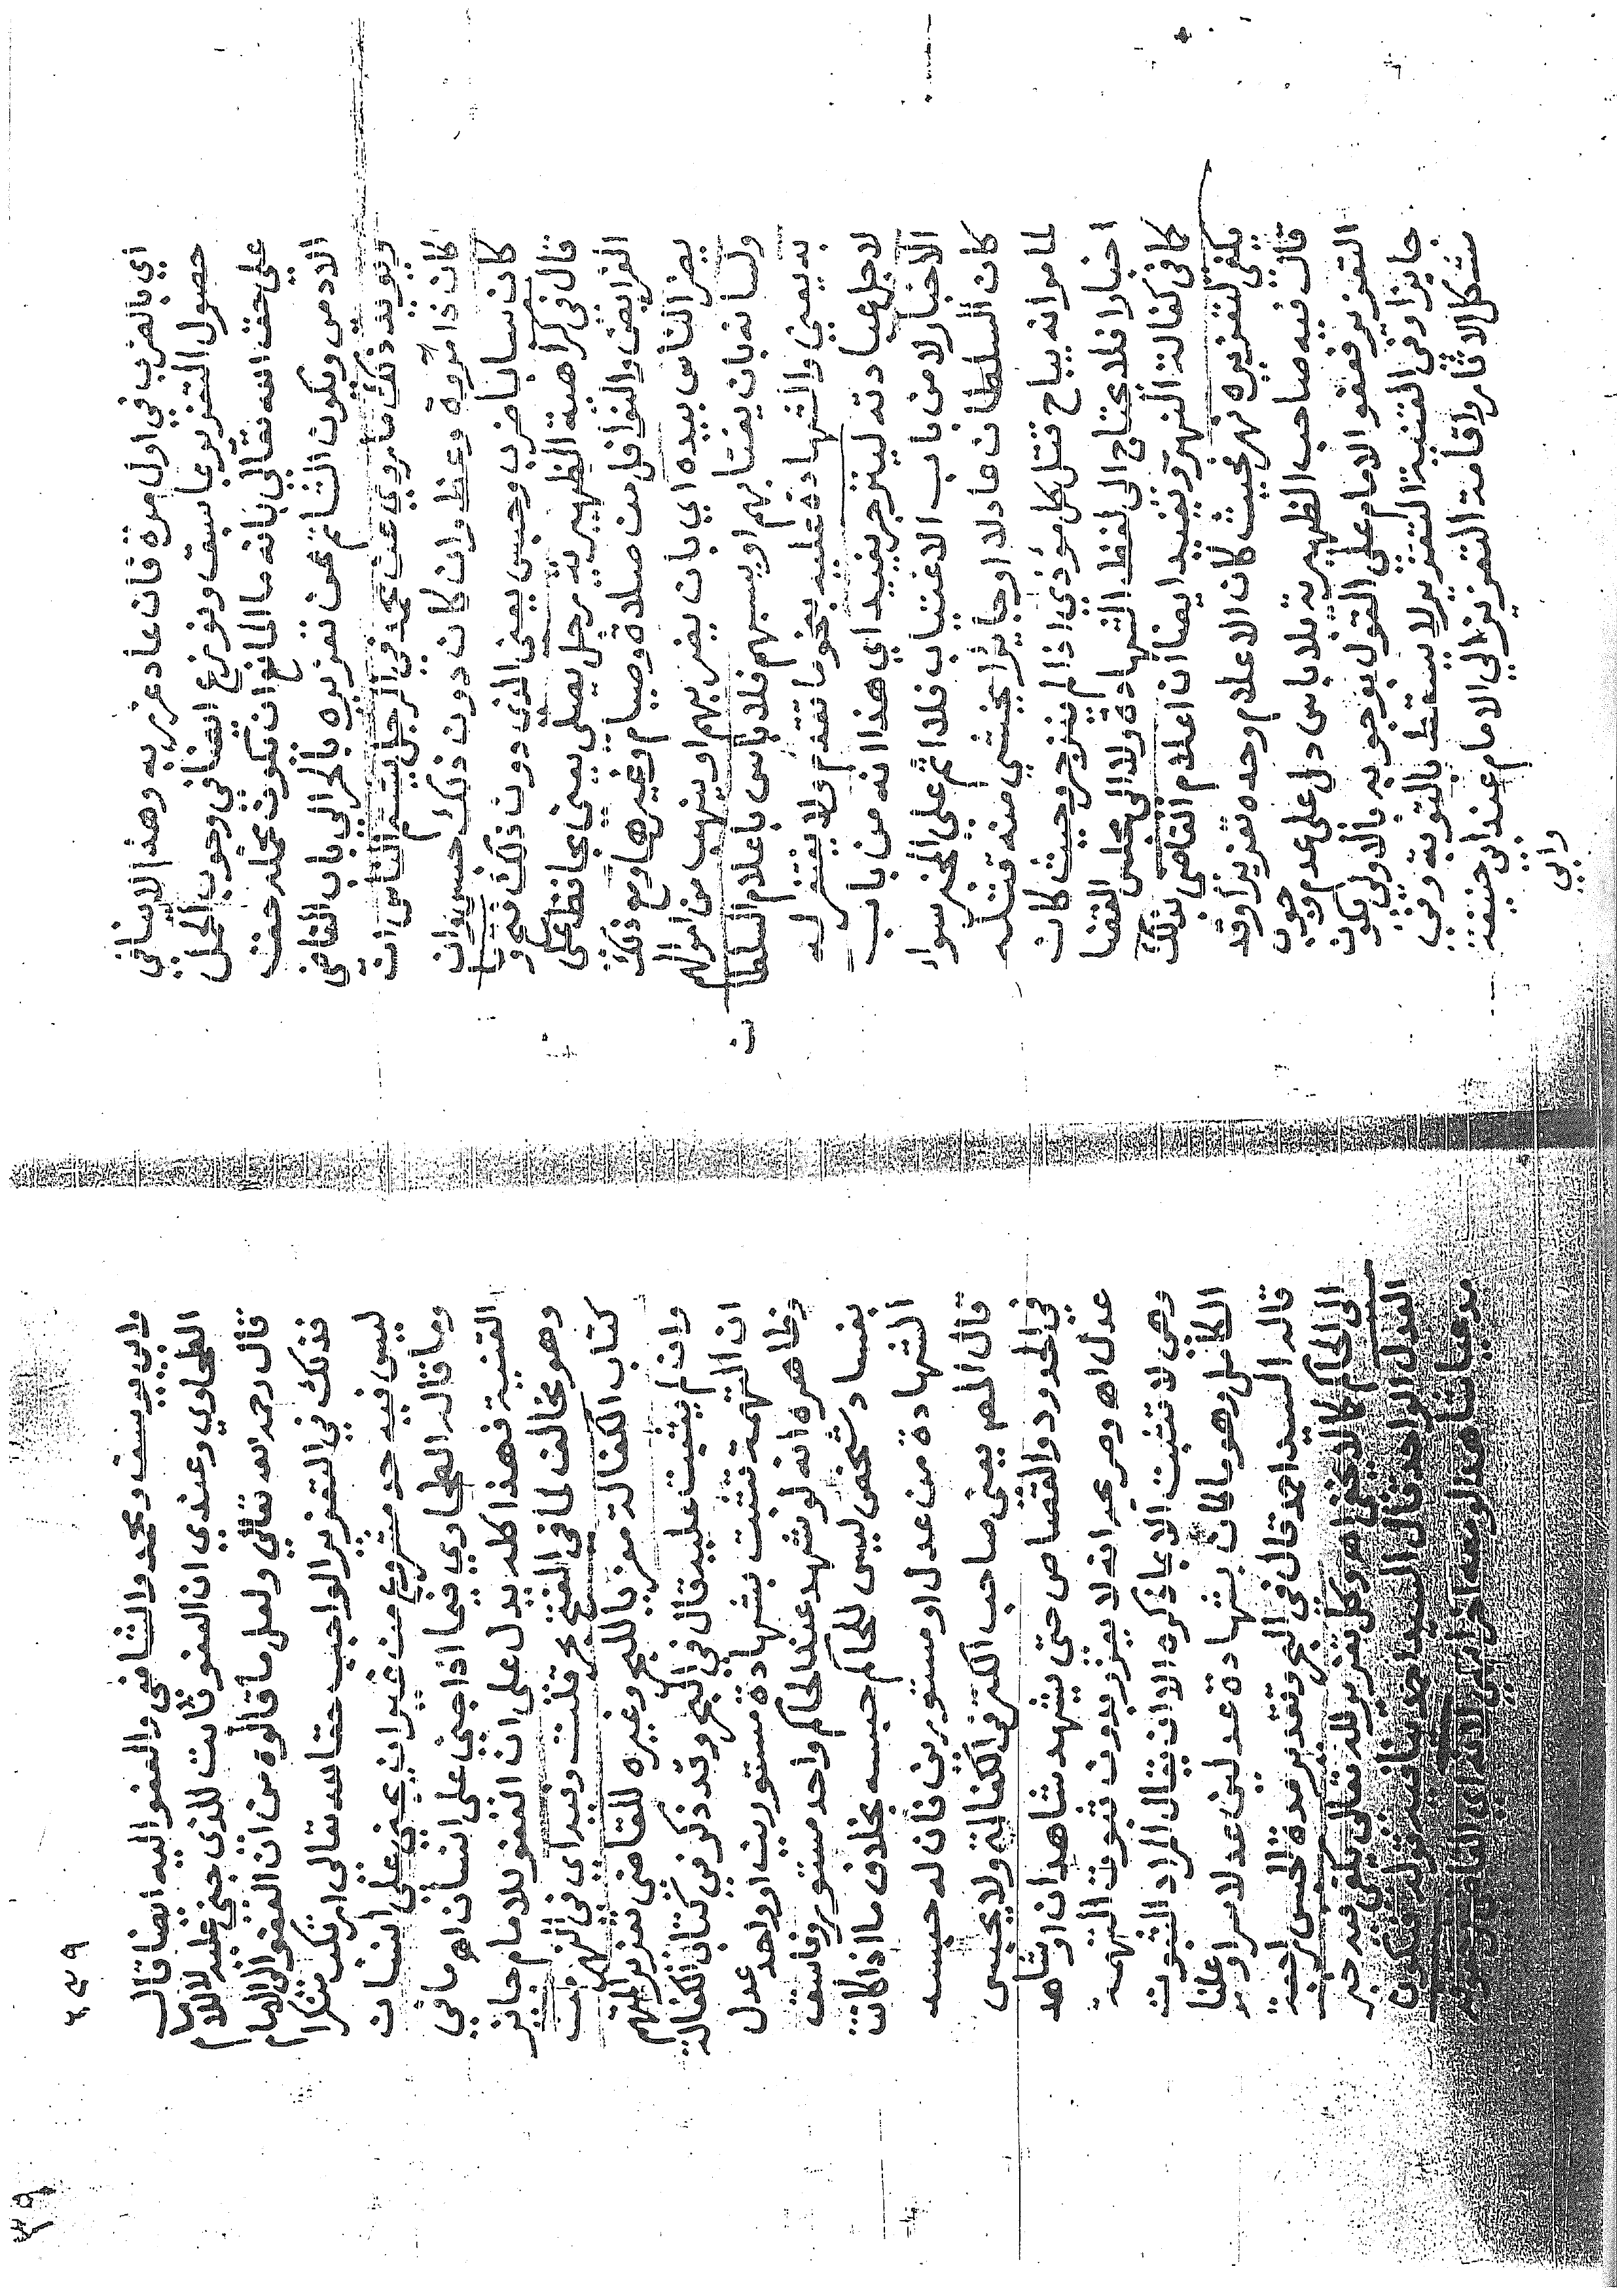 اي بالضرب في اول مرة فان عاد عزر به وهذا لا ينافي
حصول التعزير بما سبق ونوزع ايضا في وجوب الحمل
على حق الله تعالى بانه ما المانع ان تكون محله حق
الادمي ويكون الشاتم ممن تعزيره بالجر الى باب القاضي
ويويد ذلك ماروي عن محمد في الرجل يشتم الناس ان
كان ذا مروة وعظ وان كان دون ذلك حبس وان
كان سبابا ضرب وحبس يعني الذي دون ذلك فتح و
قال في كراهية الظهيرية رجل يصلي يعني يحافظ على
الفرايض والنوافل من صلاة وصيام وغيرها ومع ذلك
يضر الناس بيده اي بان يضربهم او ينهب من اموالهم
ولسانه بان يغتابهم او يسبهم فلا باس باعلام السلطان
به يعني والشهادة عليه بنحو ما تقدم ولا يفتقر له
لاجل عبادته لينزجر يفيد اي هذا انه من باب
الاخبار لا من باب الاغتياب فلا اثم على المخبر سواء
كان السلطان عادلا او جايرا يخشى منه قتله
لما مر انه يباح قتل كل موذي اذا لم ينزجر وحيث كان
اخبارا فلا يحتاج الى لفظ الشهادة ولا الى مجلس القضا
كما في كفالة النهر ويفيد ايضا ان اعلام القاضي بذلك
يكفي لتعزيره نهر بحيث كان الاعلام وحده تعزيرا وقد
قال فيه صاحب الظهيرية بلا باس دل على عدم وجوب
التعزير فعفو الامام على القول بوجوبه بالاولى يكون
جايزا وفي القنية التعزير لا يسقط بالتوبة وفي
مشكل الاثار واقامة التعزير الى الامام عند ابي حنيفة
وابي
٢٤٩
٣٩
وابي يوسف ومحمد والشافعي والعفو اليه ايضا قال
الطحاوي وعندي ان العفو ثابت للذي جني عليه لا للامام
قال رحمه الله تعالى ولعل ما قالوه من ان العفو الى الامام
فذلك في التعزير الواجب حقا لله تعالى بان ارتكب منكرا
ليس فيه حد مشروع من غير ان يجني على انسان
وما قاله الطحاوي فيما اذا جنى على انسان اهـ ما في
القنية فهذا كله يدل على ان العفو للامام جائز
وهو مخالف لما في الفتح بحر قلت وفيه اي في النهر من
كتاب الكفالة معزيا للبحر وغيره للقاضي تعزير المتهم
وان لم يثبت عليه قال في البحر وقد ذكر في كتاب الكفالة
ان التهمة تثبت بشهادة مستورين او واحد عدل
وظاهره انه لو شهد عند الحاكم واحد مستور وفاسق
بفساد شخص ليس للحاكم حبسه بخلاف ما اذا كانت
الشهادة من عدل او مستورين فان له حبسه
قال المص يعني صاحب الكنز في الكفالة ولا يحبس
في الحدود والقصاص حتى يشهد شاهدان او شاهد
عدل اهـ وصريحه انه لا يعزر بدون ثبوت التهمة
وهي لا تثبت الا بما ذكره الا ان يقال المراد الثبوت
الكامل وهو ما كان بشهادة عدلين عدلا سرا وعلنا
قاله السيد احمد قال في البحر وتقدير مدة الحبس راجعة
الى الحاكم كما لا يخفى اهـ وكل تعزير لله تعالى يكفي فيه خبر
العدل الواحد قال السيد احمد ينافيه قوله فيكون
مدعيا شاهدا لو معه آخر